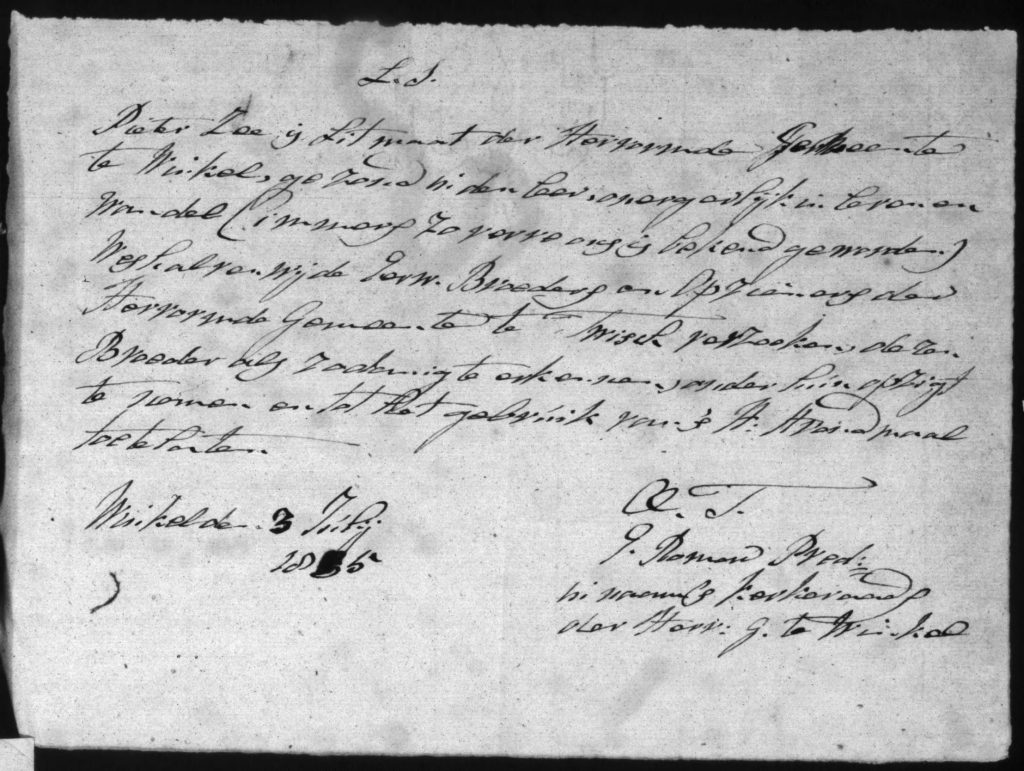 L. S.
Pieter Zee is Litmaat der Hervormde Gemeente
te Winkel, gezond in den leer, onergerlijk in leven en
wandel (immers zo verre ons is bekend geworden)
Weshalven wij de Eerw. Broeders en Opzieners der
Hervormde Gemeente te Twisch verzoeken, dezen
Broeder als zodanig te erkennen, onder hun opzigt
te nemen en tot het gebruik van 's H. Avondmaal
toetelaten.
Winkel den 3 Julij
1835
Q. T.
G. Roman Pred:
in naam 's kerkeraads
der Herv: G. te Winkel